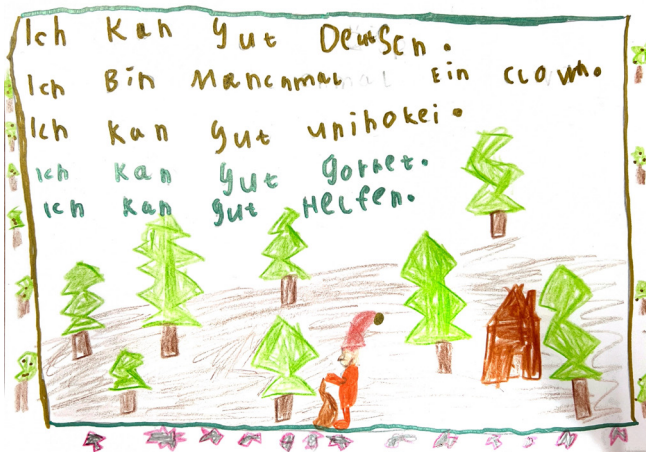 Ich Kan gut Deutsch.
Ich Bin Manchmal Ein Clown.
Ich kan gut unihokei.
ich kan gut
ich kan gut Helfen.